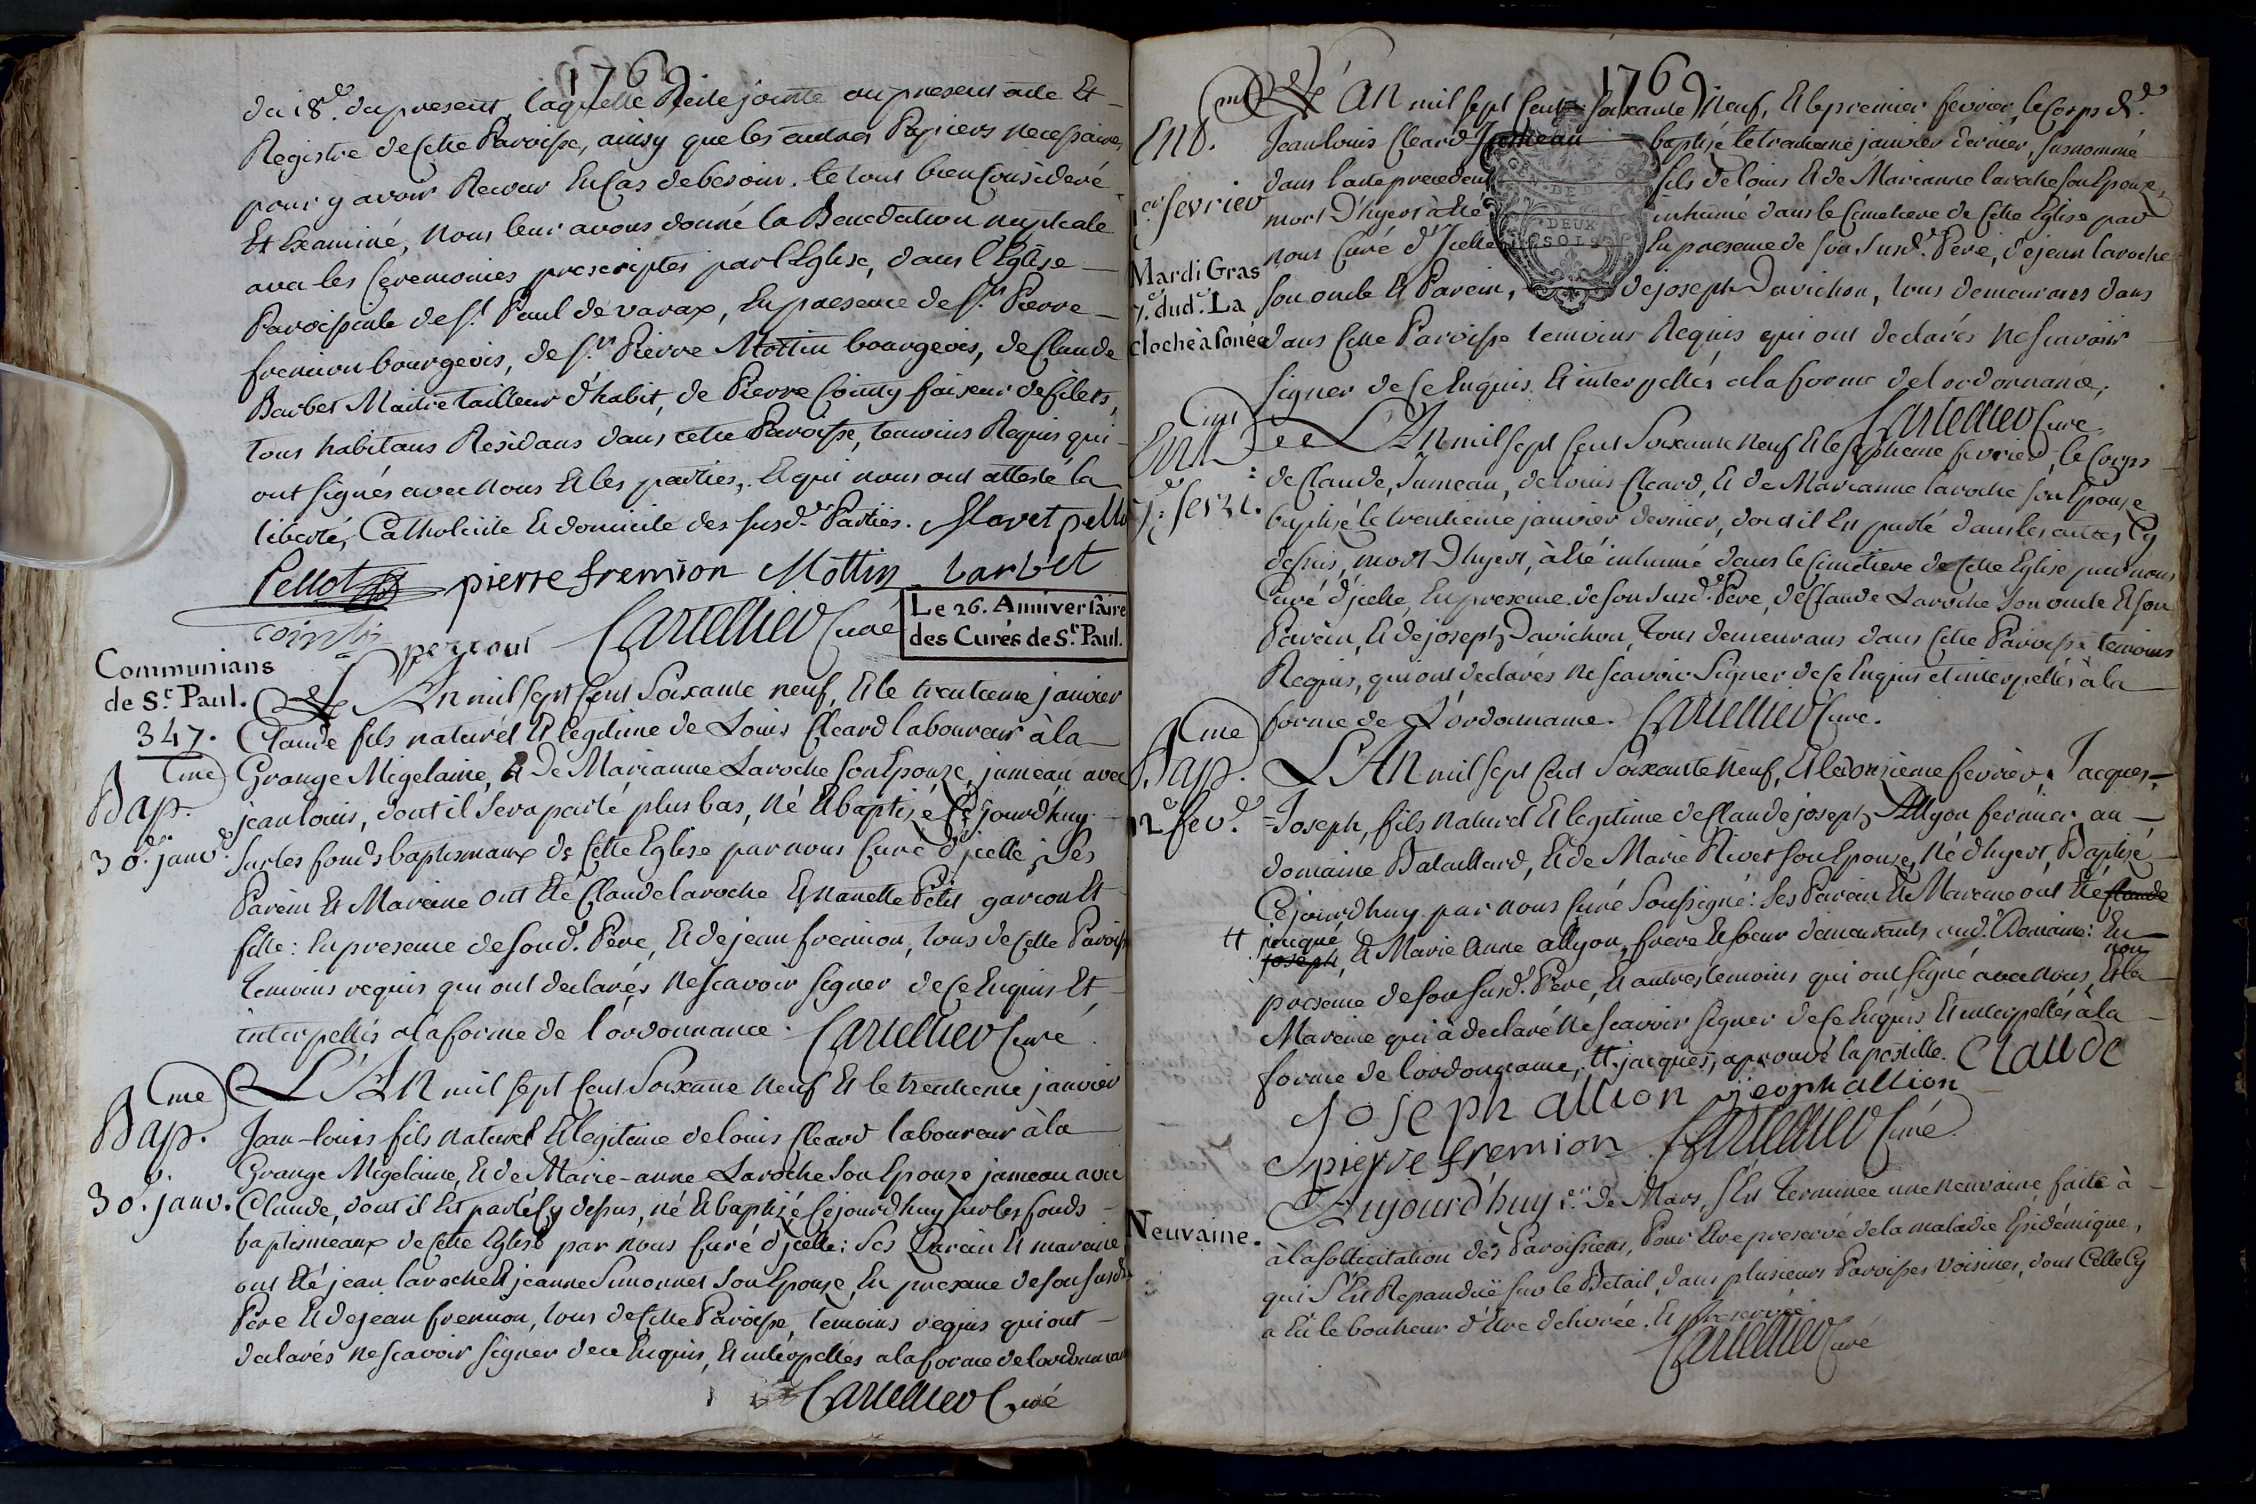 1769
du 18.e du present, laquelle Reste jointe au present acte Et
Registre de Cette Paroisse, ainsy que les autres Papiers necessaires
pour y avoir Recour En Cas de besoin. le tout bien Consideré
Et Examiné, Nous leur avons donné la Benediction nuptiale
avec les Ceremonies prescriptes par l'Eglise, dans l'Eglise
Paroissiale de St Paul de varax, En presence de Sr. Pierre
fremion bourgeois, de Sr. Pierre Mottin bourgeois, de Claude
Barbet Maitre tailleur d'habit, de Pierre Cointy faiseur de filets,
tous habitans Residans dans Cette Paroisse, temoins Requis qui
ont signés avec Nous Et les parties, Et qui nous ont attesté la
liberté, Catholicité Et domicile des susd.es Parties.
Pellot pierre fremion Mottin barbet
Cartellier Curé
Le 26. Anniversaire
des Curés de St. Paul.
Communians
de St. Paul.
347.
Bap.tme
30.e janv.
L'An mil sept Cent Soixante neuf, Et le trentieme janvier
Claude fils naturel Et legitime de Louis Cleard laboureur à la
Grange Migelaine, Et de Marianne Laroche son Epouse, jumeau avec
jean louis, dont il sera parlé plus bas, Né Et baptisé Ce jourd'huy
sur les fonds baptismaux de Cette Eglise par nous Curé d'jcelle; Ses
Parein Et Mareine ont Eté Claude laroche Et Nanette Petit garcon Et
fille: En presence de sond. Pere, Et de jean fremion, tous de Cette Paroisse
Temoins requis qui ont declarés Ne scavoir signer de Ce Enquis Et
interpellés a la forme de l'ordonnance. Cartellier Curé.
Bap.tme
30.e janv.
L'An mil sept Cent Soixante Neuf Et le trentieme janvier
Jean-louis fils naturel Et legitime de louis Cleard laboureur à la
Grange Migelaine, Et de Marie-anne Laroche son Epouse jumeau avec
Claude, dont il Est parlé Cy dessus, né Et baptisé Ce jourd'huy sur les fonds
baptismeaux de Cette Eglise par nous Curé d'jcelle: Ses Parein Et mareine
ont Eté jean laroche Et jeanne Simonnet son Epouse, En presence de son susd.
Pere Et de jean fremion, tous de Cette Paroisse, temoins requis qui ont
declarés Ne scavoir signer de ce Enquis, Et interpellés a la forme de lordonnance
Cartellier Curé
1769
Ent.mt
1.er fevrier
Mardi Gras
7.e dud. La
cloche à sonée
L'An mil sept Cent Soixante Neuf, Et le premier fevrier, le Corps de
Jean louis Cleard Jumeau baptisé le trentieme janvier dernier, susnommé
dans l'acte precedent fils de louis Et de Marianne laroche son Epouse,
mort D'hyert à Eté inhumé dans le Cimetiere de Cette Eglise par
nous Curé d'Jcelle En presence de son susd. Pere, de jean laroche
son oncle Et Parein, de joseph Davichon, tous demeurans dans
dans Cette Paroisse temoins Requis qui ont declarés Ne scavoir
signer de Ce Enquis. Et interpellés a la forme de l'ordonnance,
Cartellier Curé.
DEUX
SOLS
L'An mil sept Cent Soixante Neuf Et le septieme fevrier, le Corps
de Claude, Jumeau, de louis Cleard, Et de Marianne laroche son Epouse
baptisé le trentieme janvier dernier, dont il Est parlé dans les actes Cy
dessus, mort D'hyert, à Eté inhumé dans le Cimetiere de Cette Eglise par nous
Curé d'jcelle, En presence de son susd. Pere, de Claude Laroche son oncle Et son
Parein, Et de joseph Davichon, Tous demeurans dans Cette Paroisse temoins
Requis, qui ont declarés Ne scavoir Signer de Ce Enquis et interpellés à la
forme de L'ordonnance. Cartellier Curé.
Bap.tme
12.e fev.
L'An mil sept Cent Soixante Neuf, Et le fevrier, Jacques-
Joseph, fils Naturel Et legitime de Claude joseph Allyon fermier au
domaine Bataillard, Et de Marie Rivet son Epouse, Né d'hyert, Baptisé
Cejourd'huy par nous Curé Soussigné: Ses Parein Et Mareine ont Eté Claude
joseph, Et Marie Anne allyon, frere Et soeur demeurants aud. Domaine: En
presence de son susd. Pere, Et autres temoins qui ont signé avec Nous, Et la
Mareine qui à declaré Ne scavoir signer de Ce Enquis Et interpellés à la
forme de lordonnance, jacques, aprouvé la postille. Claude
Joseph allion joseph allion
pierre fremion Cartellier Curé.
Neuvaine.
Aujourd'huy 1.er de Mars, s'Est Terminée une neuvaine faite à
à la sollicitation des Paroissiens, Pour Etre preservé de la maladie Epidémique,
qui s'Est Repanduë sur le Betail, dans plusieurs Paroisses voisines, dont Celle Cy
a Eu le bonheur d'Etre delivrée. Et preservée
Cartellier Curé